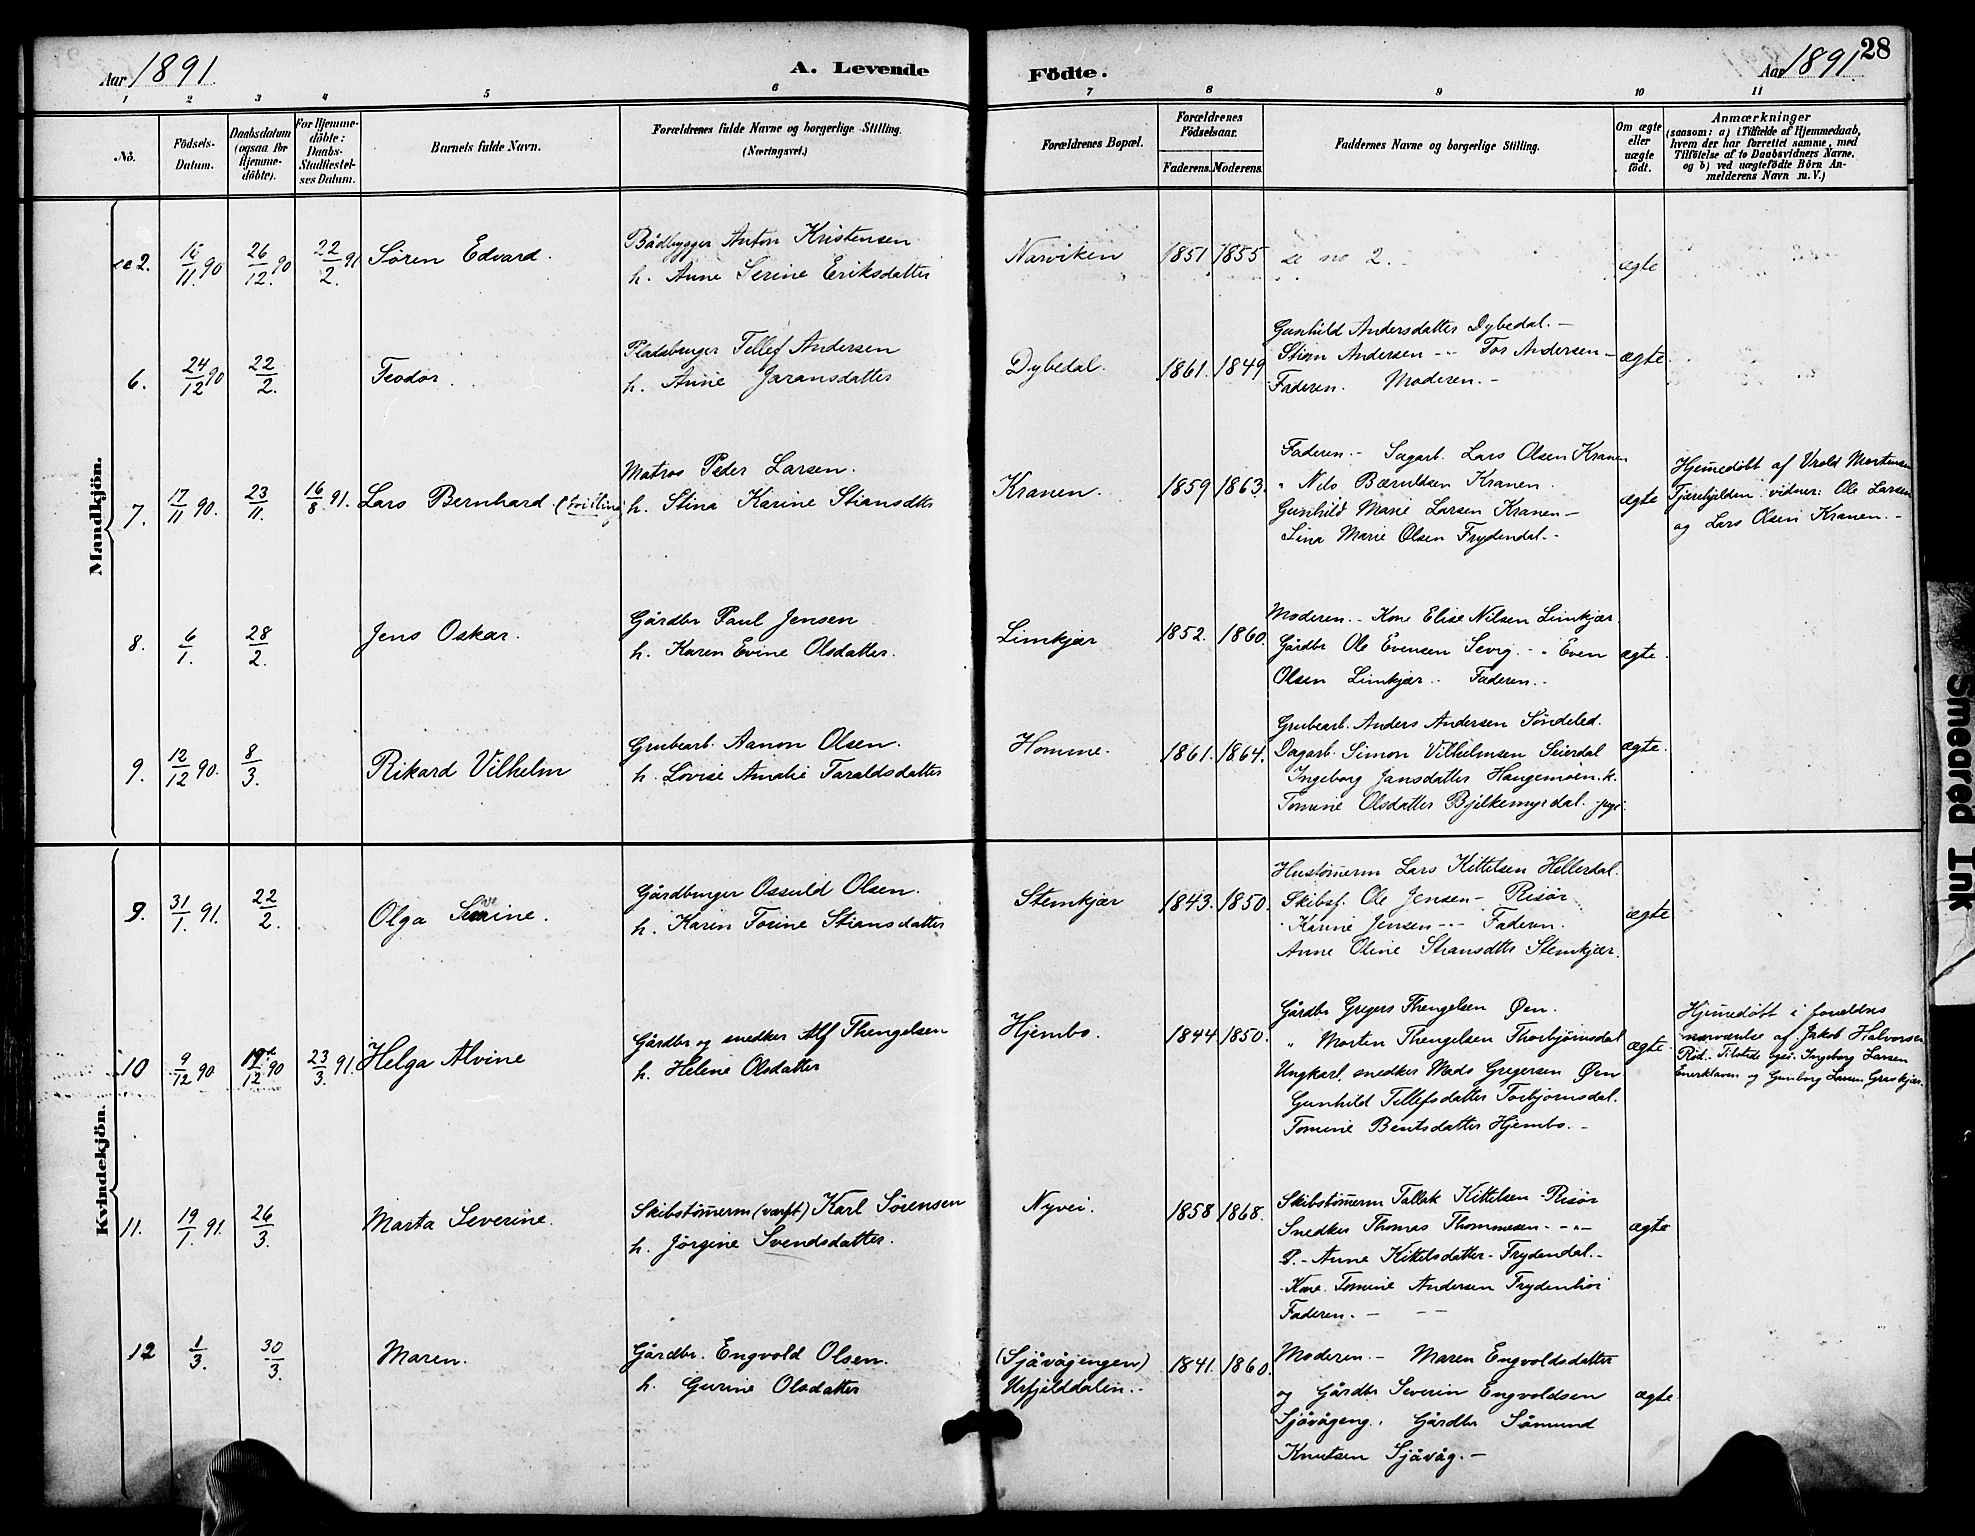 Aar 1891. A. Levende Födte. Aar 1891 28
1 2 3 4 5 6 7 8 9 10 11
No. Födsels-Datum. Daabsdatum (ogsaa for Hjemme-döbte). For Hjemme-döbte: Daabs-Stadfæstel-ses Datum. Barnets fulde Navn. Forældrenes fulde Navne og borgerlige Stilling. (Næringsvei.) Forældrenes Bopæl. Forældrenes Födselsaar. Faderens. Moderens. Faddernes Navne og borgerlige Stilling. Om ægte eller uægte födt. Anmærkninger (saasom: a) i Tilfælde af Hjemmedaab, hvem der har forrettet samme, med Tilföielse af to Daabsvidners Navne, og b) ved uægtefödte Börn An-melderens Navn m. V.)
Mandkjön.
2. 16/11 90 26/12 90 22/2 91 Søren Edvard. Bådbygger Anton Kristensen
h. Anne Serine Eriksdatter
Narviken 1851 1855 se no 2. ægte
6. 24/12 90 22/2. Teodor. Pladsbruger Tellef Andersen
h. Anne Jaransdatter
Dybedal. 1861. 1849 Gunhild Andersdatter Dybedal. -
Stian Andersen - Tor Andersen - ægte
Faderen. Moderen. -
7. 17/11 90. 23/11. 16/8 91. Lars Bernhard (tvilling) Matros Peder Larsen.
h. Stina Karine Stiansdtr
Kranen. 1859 1863. Faderen. - Sagarb. Lars Olsen Kranen
" Nils Bærulsen Kranen.
Gunhild Marie Larsen Kranen -
Lina Marie Olsen Frydendal. -
ægte Hjemedøbt af Vrold Mortensen
Tjærehjelden. vidner: Ole Larsen
og Lars Olsen Kranen. -
8. 6/1. 28/2. Jens Oskar. Gårdbr Paul Jensen
h. Karen Evine Olsdatter.
Limkjær 1852. 1860. Moderen. - Kone Elise Nilsen Limkjær
Gårdbr Ole Evensen Sevig. - Even ægte.
Olsen Limkjær. Faderen. -
9. 12/12 90. 8/3. Rikard Vilhelm Grubearb. Aanon Olsen.
h. Lovise Amalie Taraldsdatter
Homme. 1861. 1864. Grubearb. Anders Andersen Søndeled.
Dagarb. Simon Vilhelmsen Seierdal ægte.
Ingeborg Jansdatter Haugemoen. k.
Tomine Olsdatter Bjelkemyrdal. pige.
Kvindekjön.
9. 31/1 91. 22/2. Olga Serine. Gårdbruger Ossuld Olsen.
h. Karen Torine Stiansdatter
Stemkjær 1843. 1850. Hustømerm Lars Kittelsen Hellerdal.
Skibsf. Ole Jensen - Risør
Karine Jensen - Faderen. ægte
Anne Oline Stiansdtr Stemkjær.
10 9/12 90 19/12 90 23/3 91. Helga Alvine Gårdbr og snedker Alf Thengelsen
h. Helene Olsdatter
Hjembo. 1844 1850. Gårdbr Gregers Thengelsen Øen.
" Morten Thengelsen Thorbjørnsdal ægte.
Ungkarl, snedker Mads Gregersen Øen
Gunhild Tellefsdatter Torbjørnsdal.
Tomine Bentsdatter Hjembo. -
Hjemedøbt i forældres
nærværelse af Jakob Halvorsen
Rød. Tilstede Ingeborg Larsen
og Gunborg Larsen
11. 19/1 91. 26/3. Marta Severine. Skibstømerm (værft) Karl Sørensen
h. Jørgine Svendsdatter.
Nyvei. 1858 1868. Skibstømerm Tallak Kittelsen - Risør
Snedker Thomas Thommesen - " - ægte
P. - Anne Kittelsdatter - Frydendal. -
Kone. Tomine Andersen Frydenhøi
Faderen. -
12 1/3. 30/3. Maren. Gårdbr. Engvold Olsen.
h. Gurine Olsdatter
(Sjåvågengen)
Urfjelddalen. 1841. 1860. Moderen. - Maren Engvoldsdatter
og Gårdbr Severin Engvoldsen ægte
Sjåvågeng. Gårdbr Såmund
Knutsen Sjåvåg. -
Smeared Ink